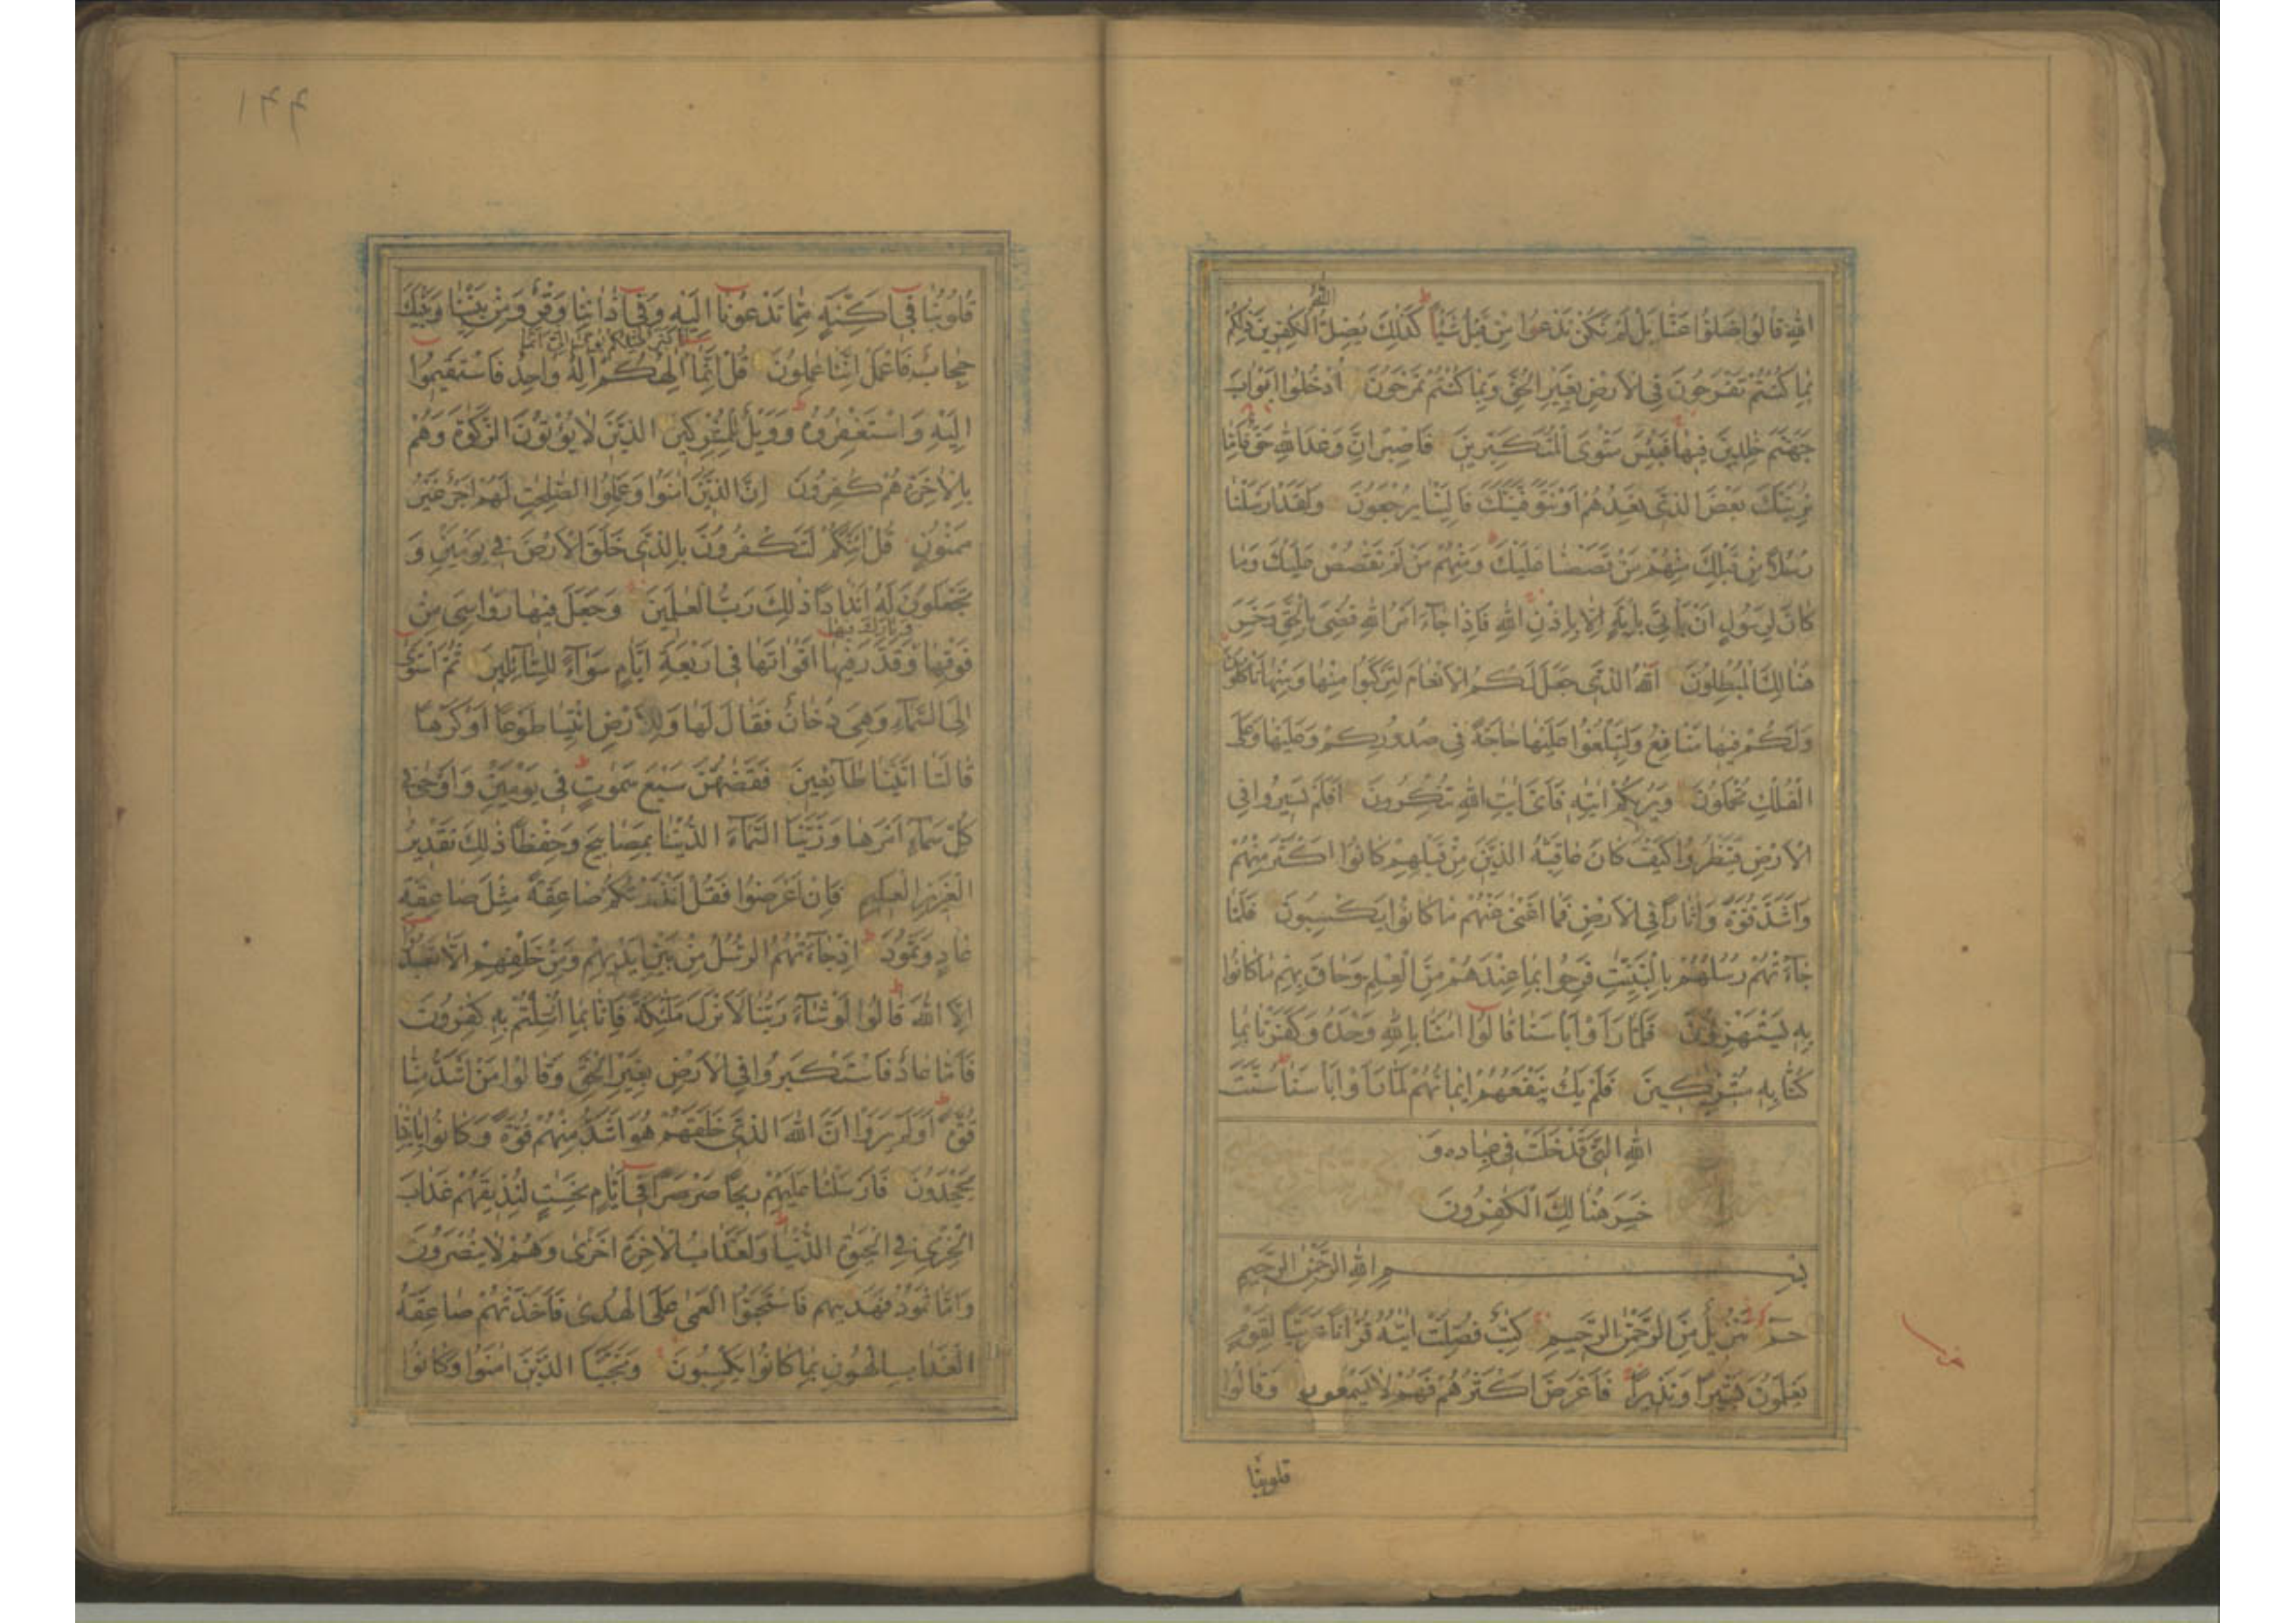 اللّٰهِ قَالُوا ضَلُّوا عَنَّا بَلْ لَمْ نَكُنْ نَدْعُوا مِنْ قَبْلُ شَيْئًا كَذٰلِكَ يُضِلُّ اللّٰهُ الْكٰفِرِينَ ذٰلِكُمْ
بِمَا كُنْتُمْ تَفْرَحُونَ فِي الْاَرْضِ بِغَيْرِ الْحَقِّ وَبِمَا كُنْتُمْ تَمْرَحُونَ اُدْخُلُوا اَبْوَابَ
جَهَنَّمَ خٰلِدِينَ فِيهَا فَبِئْسَ مَثْوَى الْمُتَكَبِّرِينَ فَاصْبِرْ اِنَّ وَعْدَ اللّٰهِ حَقٌّ فَاِمَّا
نُرِيَنَّكَ بَعْضَ الَّذِي نَعِدُهُمْ اَوْ نَتَوَفَّيَنَّكَ فَاِلَيْنَا يُرْجَعُونَ وَلَقَدْ اَرْسَلْنَا
رُسُلًا مِنْ قَبْلِكَ مِنْهُمْ مَنْ قَصَصْنَا عَلَيْكَ وَمِنْهُمْ مَنْ لَمْ نَقْصُصْ عَلَيْكَ وَمَا
كَانَ لِرَسُولٍ اَنْ يَأْتِيَ بِاٰيَةٍ اِلَّا بِاِذْنِ اللّٰهِ فَاِذَا جَآءَ اَمْرُ اللّٰهِ قُضِيَ بِالْحَقِّ وَخَسِرَ
هُنَالِكَ الْمُبْطِلُونَ اَللّٰهُ الَّذِي جَعَلَ لَكُمُ الْاَنْعَامَ لِتَرْكَبُوا مِنْهَا وَمِنْهَا تَأْكُلُونَ
وَلَكُمْ فِيهَا مَنَافِعُ وَلِتَبْلُغُوا عَلَيْهَا حَاجَةً فِي صُدُورِكُمْ وَعَلَيْهَا وَعَلَى
الْفُلْكِ تُحْمَلُونَ وَيُرِيكُمْ اٰيٰتِهِ فَاَيَّ اٰيٰتِ اللّٰهِ تُنْكِرُونَ اَفَلَمْ يَسِيرُوا فِي
الْاَرْضِ فَيَنْظُرُوا كَيْفَ كَانَ عَاقِبَةُ الَّذِينَ مِنْ قَبْلِهِمْ كَانُوا اَكْثَرَ مِنْهُمْ
وَاَشَدَّ قُوَّةً وَاٰثَارًا فِي الْاَرْضِ فَمَا اَغْنٰى عَنْهُمْ مَا كَانُوا يَكْسِبُونَ فَلَمَّا
جَآءَتْهُمْ رُسُلُهُمْ بِالْبَيِّنٰتِ فَرِحُوا بِمَا عِنْدَهُمْ مِنَ الْعِلْمِ وَحَاقَ بِهِمْ مَا كَانُوا
بِهِ يَسْتَهْزِؤُنَ فَلَمَّا رَاَوْا بَاْسَنَا قَالُوا اٰمَنَّا بِاللّٰهِ وَحْدَهُ وَكَفَرْنَا بِمَا
كُنَّا بِهِ مُشْرِكِينَ فَلَمْ يَكُ يَنْفَعُهُمْ اِيمَانُهُمْ لَمَّا رَاَوْا بَاْسَنَا سُنَّتَ
اللّٰهِ الَّتِي قَدْ خَلَتْ فِي عِبَادِهِ وَ
خَسِرَ هُنَالِكَ الْكٰفِرُونَ
بِسْمِ اللّٰهِ الرَّحْمٰنِ الرَّحِيمِ
حٰمٓ تَنْزِيلٌ مِنَ الرَّحْمٰنِ الرَّحِيمِ كِتٰبٌ فُصِّلَتْ اٰيٰتُهُ قُرْاٰنًا عَرَبِيًّا لِقَوْمٍ
يَعْلَمُونَ بَشِيرًا وَنَذِيرًا فَاَعْرَضَ اَكْثَرُهُمْ فَهُمْ لَا يَسْمَعُونَ وَقَالُوا
قلوبنا
١٤٤
قُلُوبُنَا فِي اَكِنَّةٍ مِمَّا تَدْعُونَا اِلَيْهِ وَفِي اٰذَانِنَا وَقْرٌ وَمِنْ بَيْنِنَا وَبَيْنِكَ
حِجَابٌ فَاعْمَلْ اِنَّنَا عٰمِلُونَ قُلْ اِنَّمَا اَنَا بَشَرٌ مِثْلُكُمْ يُوحٰى اِلَيَّ اَنَّمَا اِلٰهُكُمْ اِلٰهٌ وَاحِدٌ فَاسْتَقِيمُوا
اِلَيْهِ وَاسْتَغْفِرُوهُ وَوَيْلٌ لِلْمُشْرِكِينَ الَّذِينَ لَا يُؤْتُونَ الزَّكٰوةَ وَهُمْ
بِالْاٰخِرَةِ هُمْ كٰفِرُونَ اِنَّ الَّذِينَ اٰمَنُوا وَعَمِلُوا الصّٰلِحٰتِ لَهُمْ اَجْرٌ غَيْرُ
مَمْنُونٍ قُلْ اَئِنَّكُمْ لَتَكْفُرُونَ بِالَّذِي خَلَقَ الْاَرْضَ فِي يَوْمَيْنِ وَ
تَجْعَلُونَ لَهُ اَنْدَادًا ذٰلِكَ رَبُّ الْعٰلَمِينَ وَجَعَلَ فِيهَا رَوَاسِيَ مِنْ
فَوْقِهَا وَبَارَكَ فِيهَا وَقَدَّرَ فِيهَا اَقْوَاتَهَا فِي اَرْبَعَةِ اَيَّامٍ سَوَآءً لِلسَّآئِلِينَ ثُمَّ اسْتَوٰى
اِلَى السَّمَآءِ وَهِيَ دُخَانٌ فَقَالَ لَهَا وَلِلْاَرْضِ ائْتِيَا طَوْعًا اَوْ كَرْهًا
قَالَتَا اَتَيْنَا طَآئِعِينَ فَقَضٰهُنَّ سَبْعَ سَمٰوٰتٍ فِي يَوْمَيْنِ وَاَوْحٰى فِي
كُلِّ سَمَآءٍ اَمْرَهَا وَزَيَّنَّا السَّمَآءَ الدُّنْيَا بِمَصَابِيحَ وَحِفْظًا ذٰلِكَ تَقْدِيرُ
الْعَزِيزِ الْعَلِيمِ فَاِنْ اَعْرَضُوا فَقُلْ اَنْذَرْتُكُمْ صَاعِقَةً مِثْلَ صَاعِقَةِ
عَادٍ وَثَمُودَ اِذْ جَآءَتْهُمُ الرُّسُلُ مِنْ بَيْنِ اَيْدِيهِمْ وَمِنْ خَلْفِهِمْ اَلَّا تَعْبُدُوا
اِلَّا اللّٰهَ قَالُوا لَوْ شَآءَ رَبُّنَا لَاَنْزَلَ مَلٰٓئِكَةً فَاِنَّا بِمَا اُرْسِلْتُمْ بِهِ كٰفِرُونَ
فَاَمَّا عَادٌ فَاسْتَكْبَرُوا فِي الْاَرْضِ بِغَيْرِ الْحَقِّ وَقَالُوا مَنْ اَشَدُّ مِنَّا
قُوَّةً اَوَلَمْ يَرَوْا اَنَّ اللّٰهَ الَّذِي خَلَقَهُمْ هُوَ اَشَدُّ مِنْهُمْ قُوَّةً وَكَانُوا بِاٰيٰتِنَا
يَجْحَدُونَ فَاَرْسَلْنَا عَلَيْهِمْ رِيحًا صَرْصَرًا فِي اَيَّامٍ نَحِسَاتٍ لِنُذِيقَهُمْ عَذَابَ
الْخِزْيِ فِي الْحَيٰوةِ الدُّنْيَا وَلَعَذَابُ الْاٰخِرَةِ اَخْزٰى وَهُمْ لَا يُنْصَرُونَ
وَاَمَّا ثَمُودُ فَهَدَيْنٰهُمْ فَاسْتَحَبُّوا الْعَمٰى عَلَى الْهُدٰى فَاَخَذَتْهُمْ صَاعِقَةُ
الْعَذَابِ الْهُونِ بِمَا كَانُوا يَكْسِبُونَ وَنَجَّيْنَا الَّذِينَ اٰمَنُوا وَكَانُوا